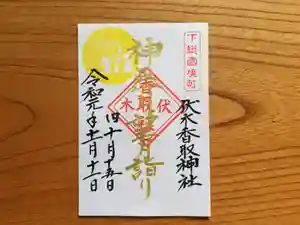 下総國境町
伏木香取神社
神社月詣り
伏木
香取
旧十月十五日
令和元年十一月十一日